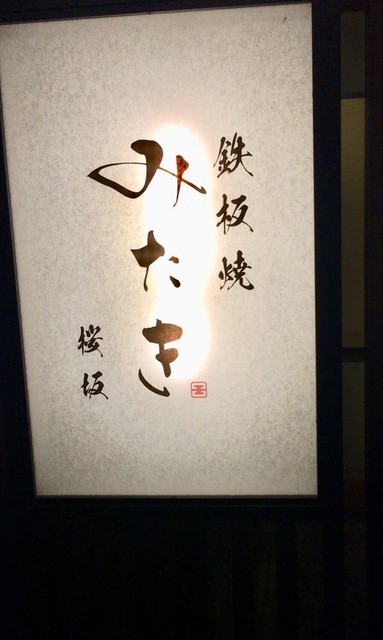 鉄板焼
みたき
桜坂